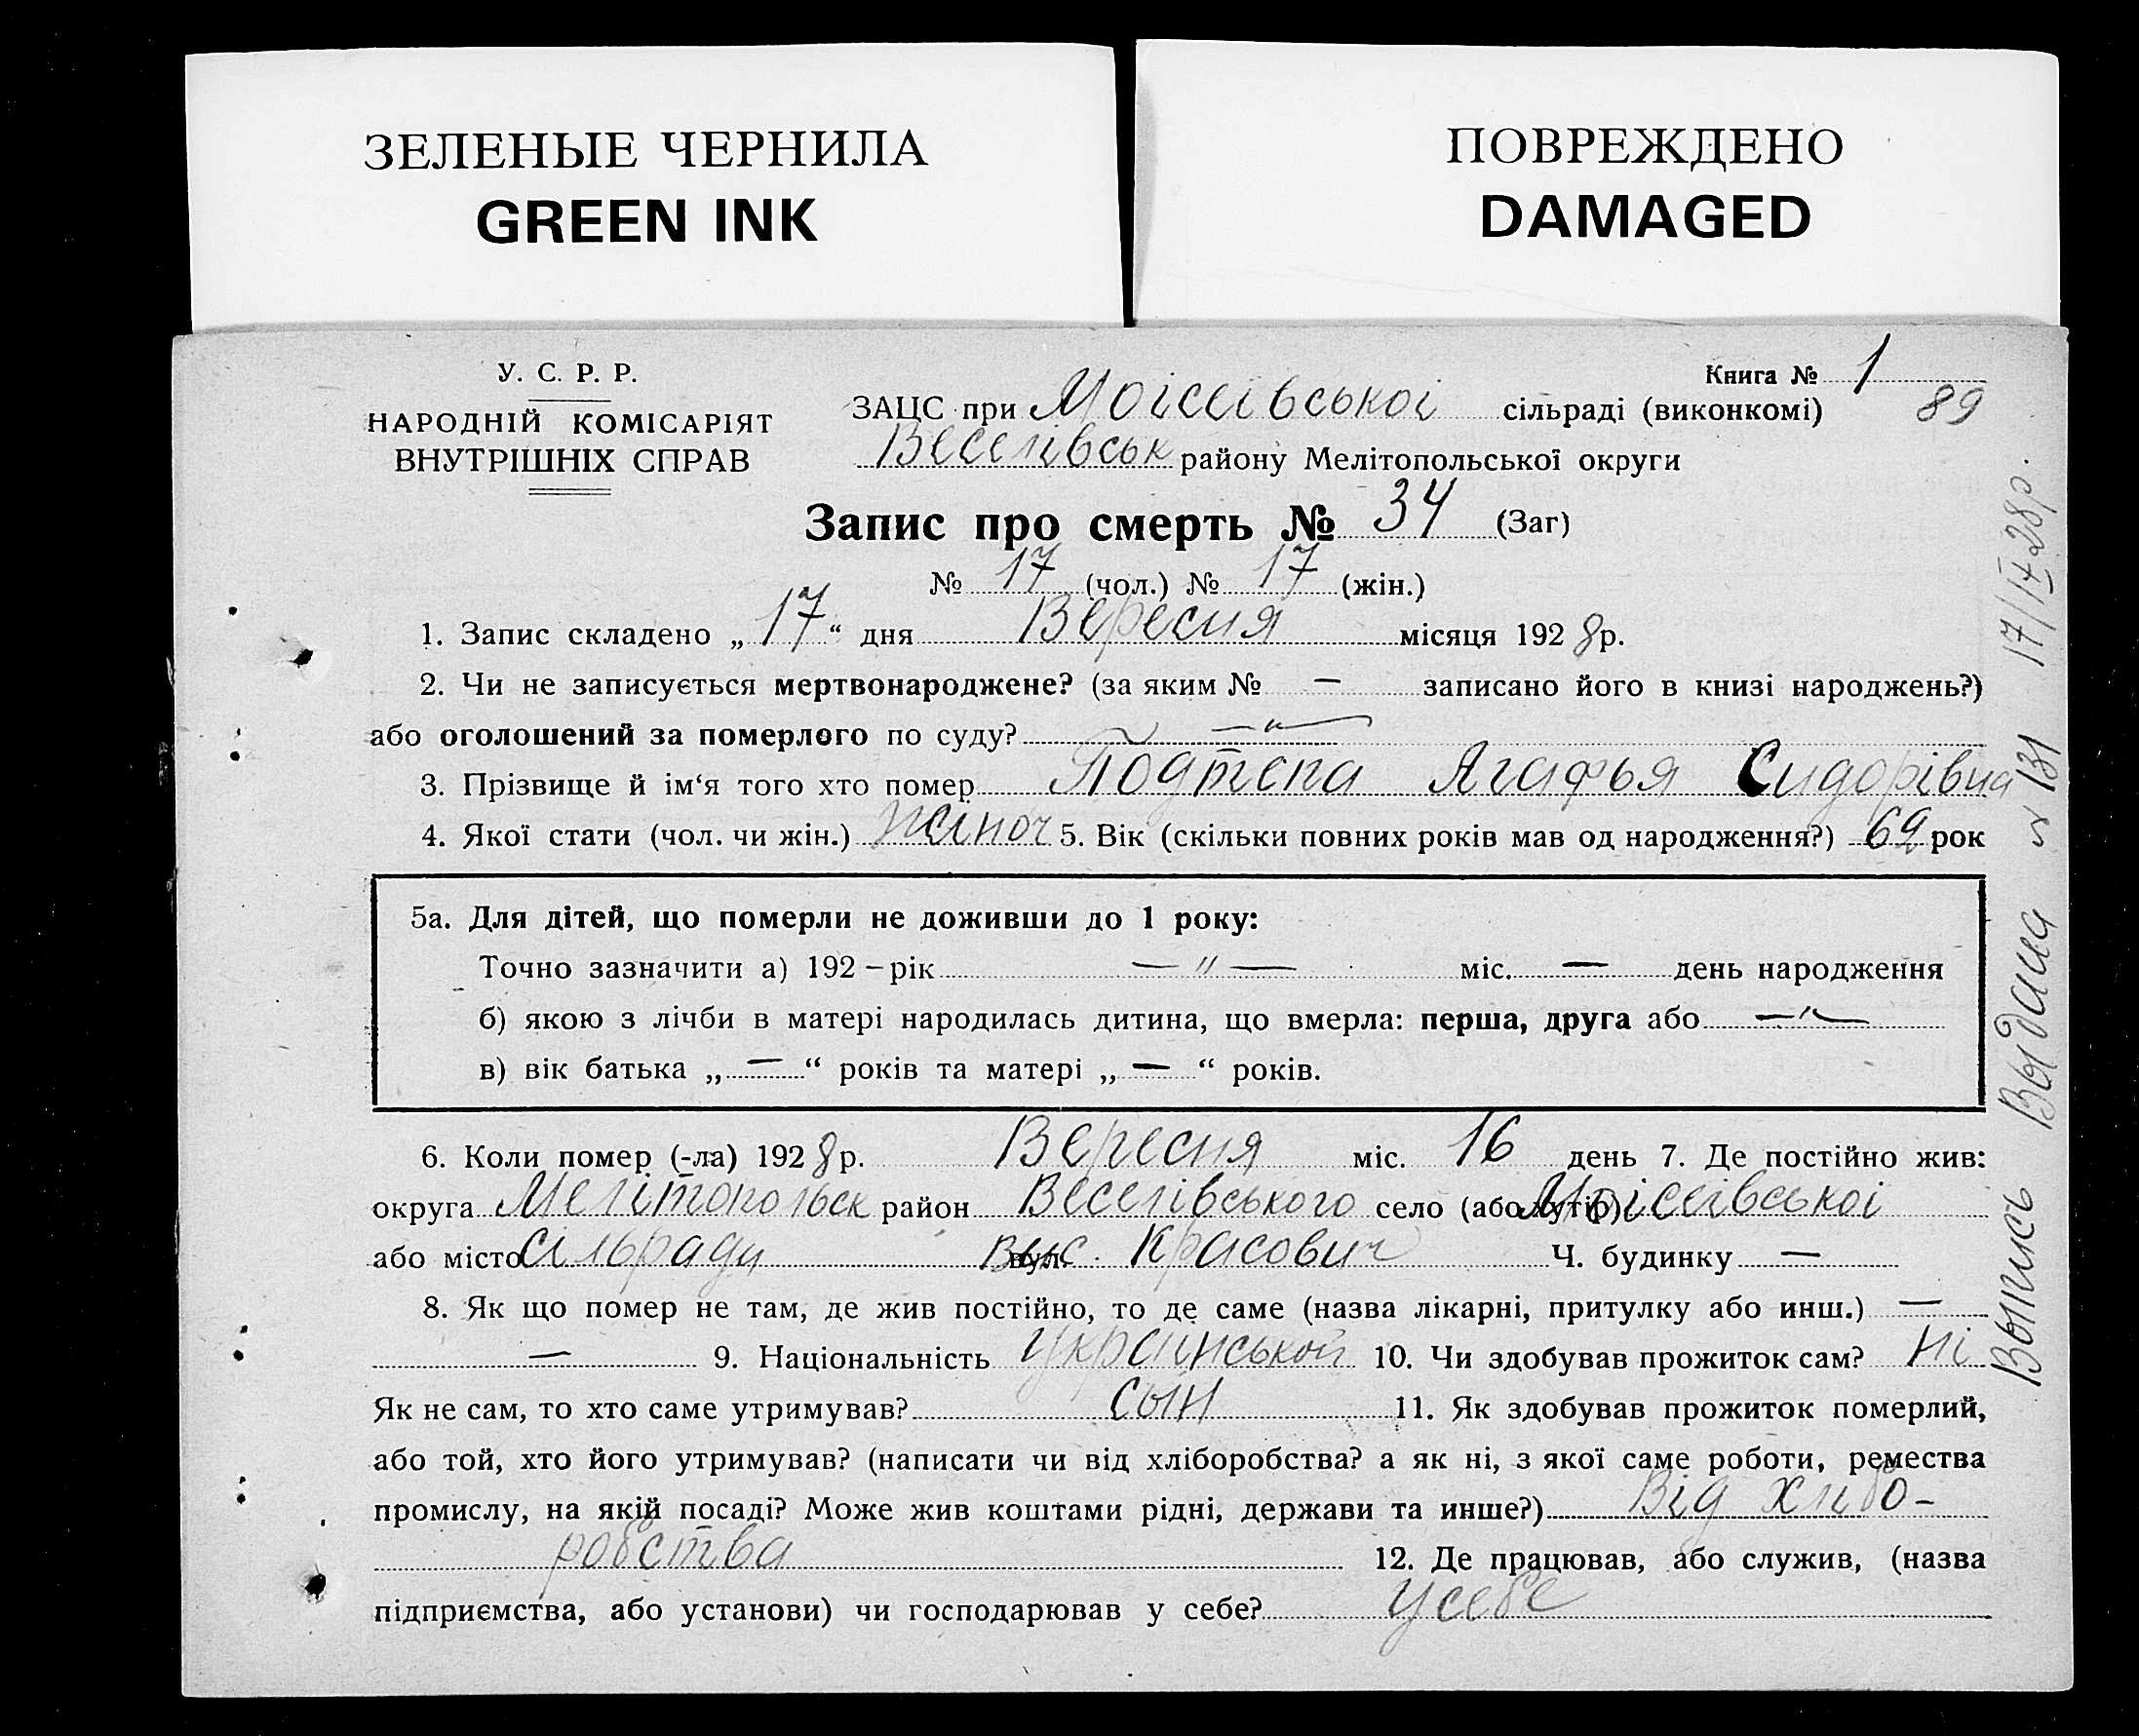 ЗЕЛЕНЫЕ ЧЕРНИЛА
GREEN INK
ПОВРЕЖДЕНО
DAMAGED
У. С. Р. Р.
НАРОДНІЙ КОМІСАРІЯТ
ВНУТРІШНІХ СПРАВ
Книга № 1
89
ЗАЦС при Моісеівської сільраді (виконкомі)
Веселівськ району Мелітопольської округи
Запис про смерть № 34 (Заг)
№ 17 (чол.) № 17 (жін.)
1. Запис складено „17“ дня Вересня місяця 1928 р.
2. Чи не записується мертвонароджене? (за яким № — записано його в книзі народжень?)
або оголошений за померлого по суду? —"—
3. Прізвище й ім‘я того хто помер Подтепа Агафья Сидорівна
4. Якої стати (чол. чи жін.) жіноч 5. Вік (скільки повних років мав од народження?) 69 рок
5а. Для дітей, що померли не доживши до 1 року:
Точно зазначити а) 192 – рік —"— міс. — день народження
б) якою з лічби в матері народилась дитина, що вмерла: перша, друга або —"—
в) вік батька „—“ років та матері „—“ років.
6. Коли помер (-ла) 1928 р. Вересня міс. 16 день 7. Де постійно жив:
округа Мелітопольск район Веселівського село (або хутір) Моісеівської
або місто сільради вул. Выс. Красович Ч. будинку —
8. Як що помер не там, де жив постійно, то де саме (назва лікарні, притулку або инш.) —
— 9. Національність Українськой 10. Чи здобував прожиток сам? ні
Як не сам, то хто саме утримував? сын 11. Як здобував прожиток померлий,
або той, хто його утримував? (написати чи від хліборобства? а як ні, з якої саме роботи, ремества
промислу, на якій посаді? Може жив коштами рідні, держави та инше?) Від хлібо-
робства 12. Де працював, або служив, (назва
підприємства, або установи) чи господарював у себе? у себе
Выпись Выдана № 131 17/IX-28р.